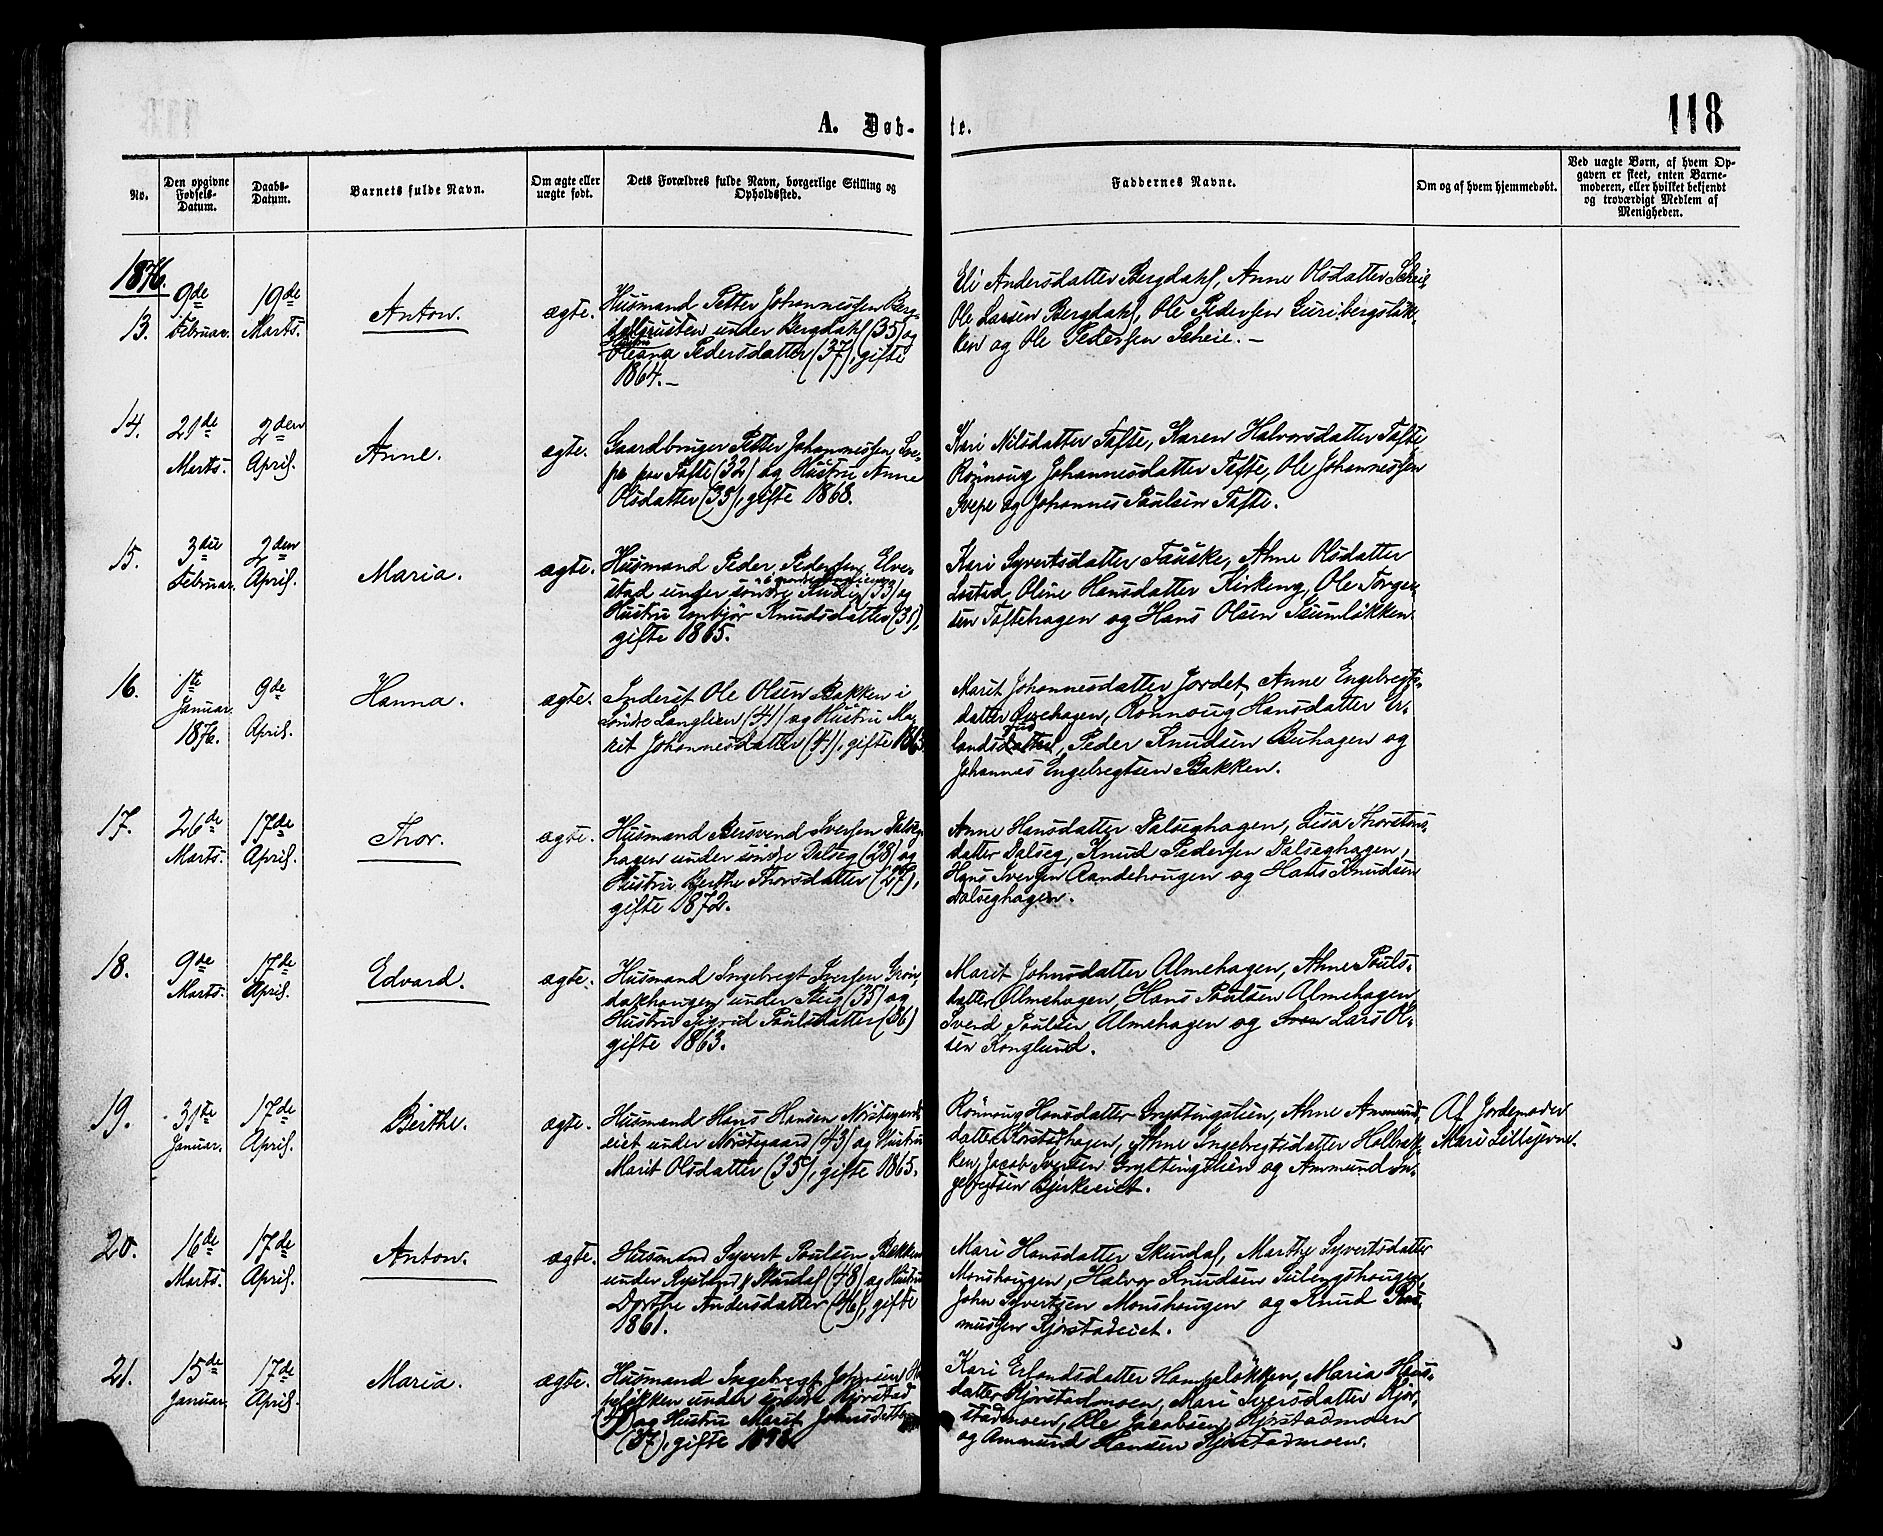 118
A. Døb-te.
No.
Den opgivne
Fødsels-
Datum.
Daabs-
Datum.
Barnets fulde Navn.
Om ægte eller
uægte født.
Dets Forældres fulde Navn, borgerlige Stilling og
Opholdssted.
Faddernes Navne.
Om og af hvem hjemmedøbt.
Ved uægte Børn, af hvem Op-
gaven er skeet, enten Barne-
moderen, eller hvilket bekjendt
og troværdigt Medlem af
Menigheden.
1876.
13.
9de
Februar.
19de
Marts.
Anton.
ægte.
Husmand Petter Johannessen Berg-
under Bergdahl (35) og
Oleana Pedersdatter (37), gifte
1864.-
Eli Andersdatter Bergdahl, Anne Olsdatter Scheie
Ole Larsen Bergdahl, Ole Pedersen Guribergsløk-
ken og Ole Pedersen Scheie.-
14.
21de
Marts.
2den
April.
Anne.
ægte.
Gaardbruger Petter Johannessen Sve-
pe Tofte (32) og Hustru Anne
Olsdatter (35), gifte 1868.
Kari Nilsdatter Tofte, Karen Halvorsdatter Tofte,
Rønnoug Johannesdatter Tofte, Ole Johannessen
Svepe og Johannes Poulsen Tofte.
15.
3die
Februar.
2den
April.
Maria.
ægte.
Husmand Peder Pedersen Elve-
stad under søndre (33) og
Hustru Knudsdatter (35),
gifte 1865.
Kari Syvertsdatter Fauske, Ahne Olsdatter
Oline Hansdatter Kirkeng, Ole Torger-
sen Toftehagen og Hans Olsen
16.
1ste
Januar.
1876.
9de
April.
Hanna.
ægte.
Inderst Ole Olsen Bakken i
søndre Langlien (34) og Hustru Ma-
rit Johannesdatter (41), gifte 1863
Marit Johannesdatter Jordet, Anne Engebregts-
datter Buehagen, Rønnoug Hansdatter Er-
lands, Peder Knudsen Buhagen og
Johannes Engebregtsen Bakken.
17.
26de
Marts.
17de
April.
Thor.
ægte.
Husmand Bersvend Iversen Dalseg-
hagen under søndre Dalseg (28) og
Hustru Berthe Thorsdatter (27),
gifte 1872.
Anne Hansdatter Dalseghagen, Lisa Thorstens-
datter Dalseg, Knud Pedersen Dalseghagen,
Hans Iversen Randehougen og Hans Knudsen
Dalseghagen.
18.
9de
Marts.
17de
April.
Edvard.
ægte.
Husmand Ingebregt Iversen Grøn-
dalshougen under Steig (35) og
Hustru Sigrid Poulsdatter (36)
gifte 1863.
Marit Johnsdatter Almehagen, Ahne Pouls-
datter Almehagen, Hans Poulsen Almehagen,
Sverd Poulsen Almehagen og Lars Ol-
sen Konglund.
19.
31te
Januar.
17de
April.
Berthe.
ægte.
Husmand Hans Hansen Nørstegaards-
eiet under Nørstegaard (43) og Hustru
Marit Olsdatter (35), gifte 1865.
Rønnoug Hansdatter Gryttingslien, Ahne Ammunds-
datter Korstadhagen, Ahne Ingebregtsdatter Holbræk-
ken, Jacob Iversen Gryttingslien og Ammund In-
gebregtsen Bjerkeeiet.
Af Jordemoder
Mari Lillejevne.
20.
16de
Marts.
17de
April.
Anton.
ægte.
Husmand Syvert Poulsen Bakken
under Skurdal (48) og Hustru
Dorthe Andersdatter (46), gifte
1861.
Mari Hansdatter Skurdal, Marthe Syvertsdatter
Monshougen, Halvor Knudsen Sulengshougen,
John Syvertsen Monshougen og Knud Ras-
mussen Kjørstadeiet.
21.
15de
Januar.
17de
April.
Maria.
ægte.
Husmand Ingebregt Johnsen
løkken under søndre Kjørstad
og Hustru Marit Johnsdatter
(37), gifte
Kari Erlandsdatter Hampeløkken, Maria Hans-
datter Kjørstadmoen, Mari Iversdatter Kjør-
stadmoen, Ole Jacobsen Kjørstadmoen
og Ammund Hansen Kjørstadmoen.